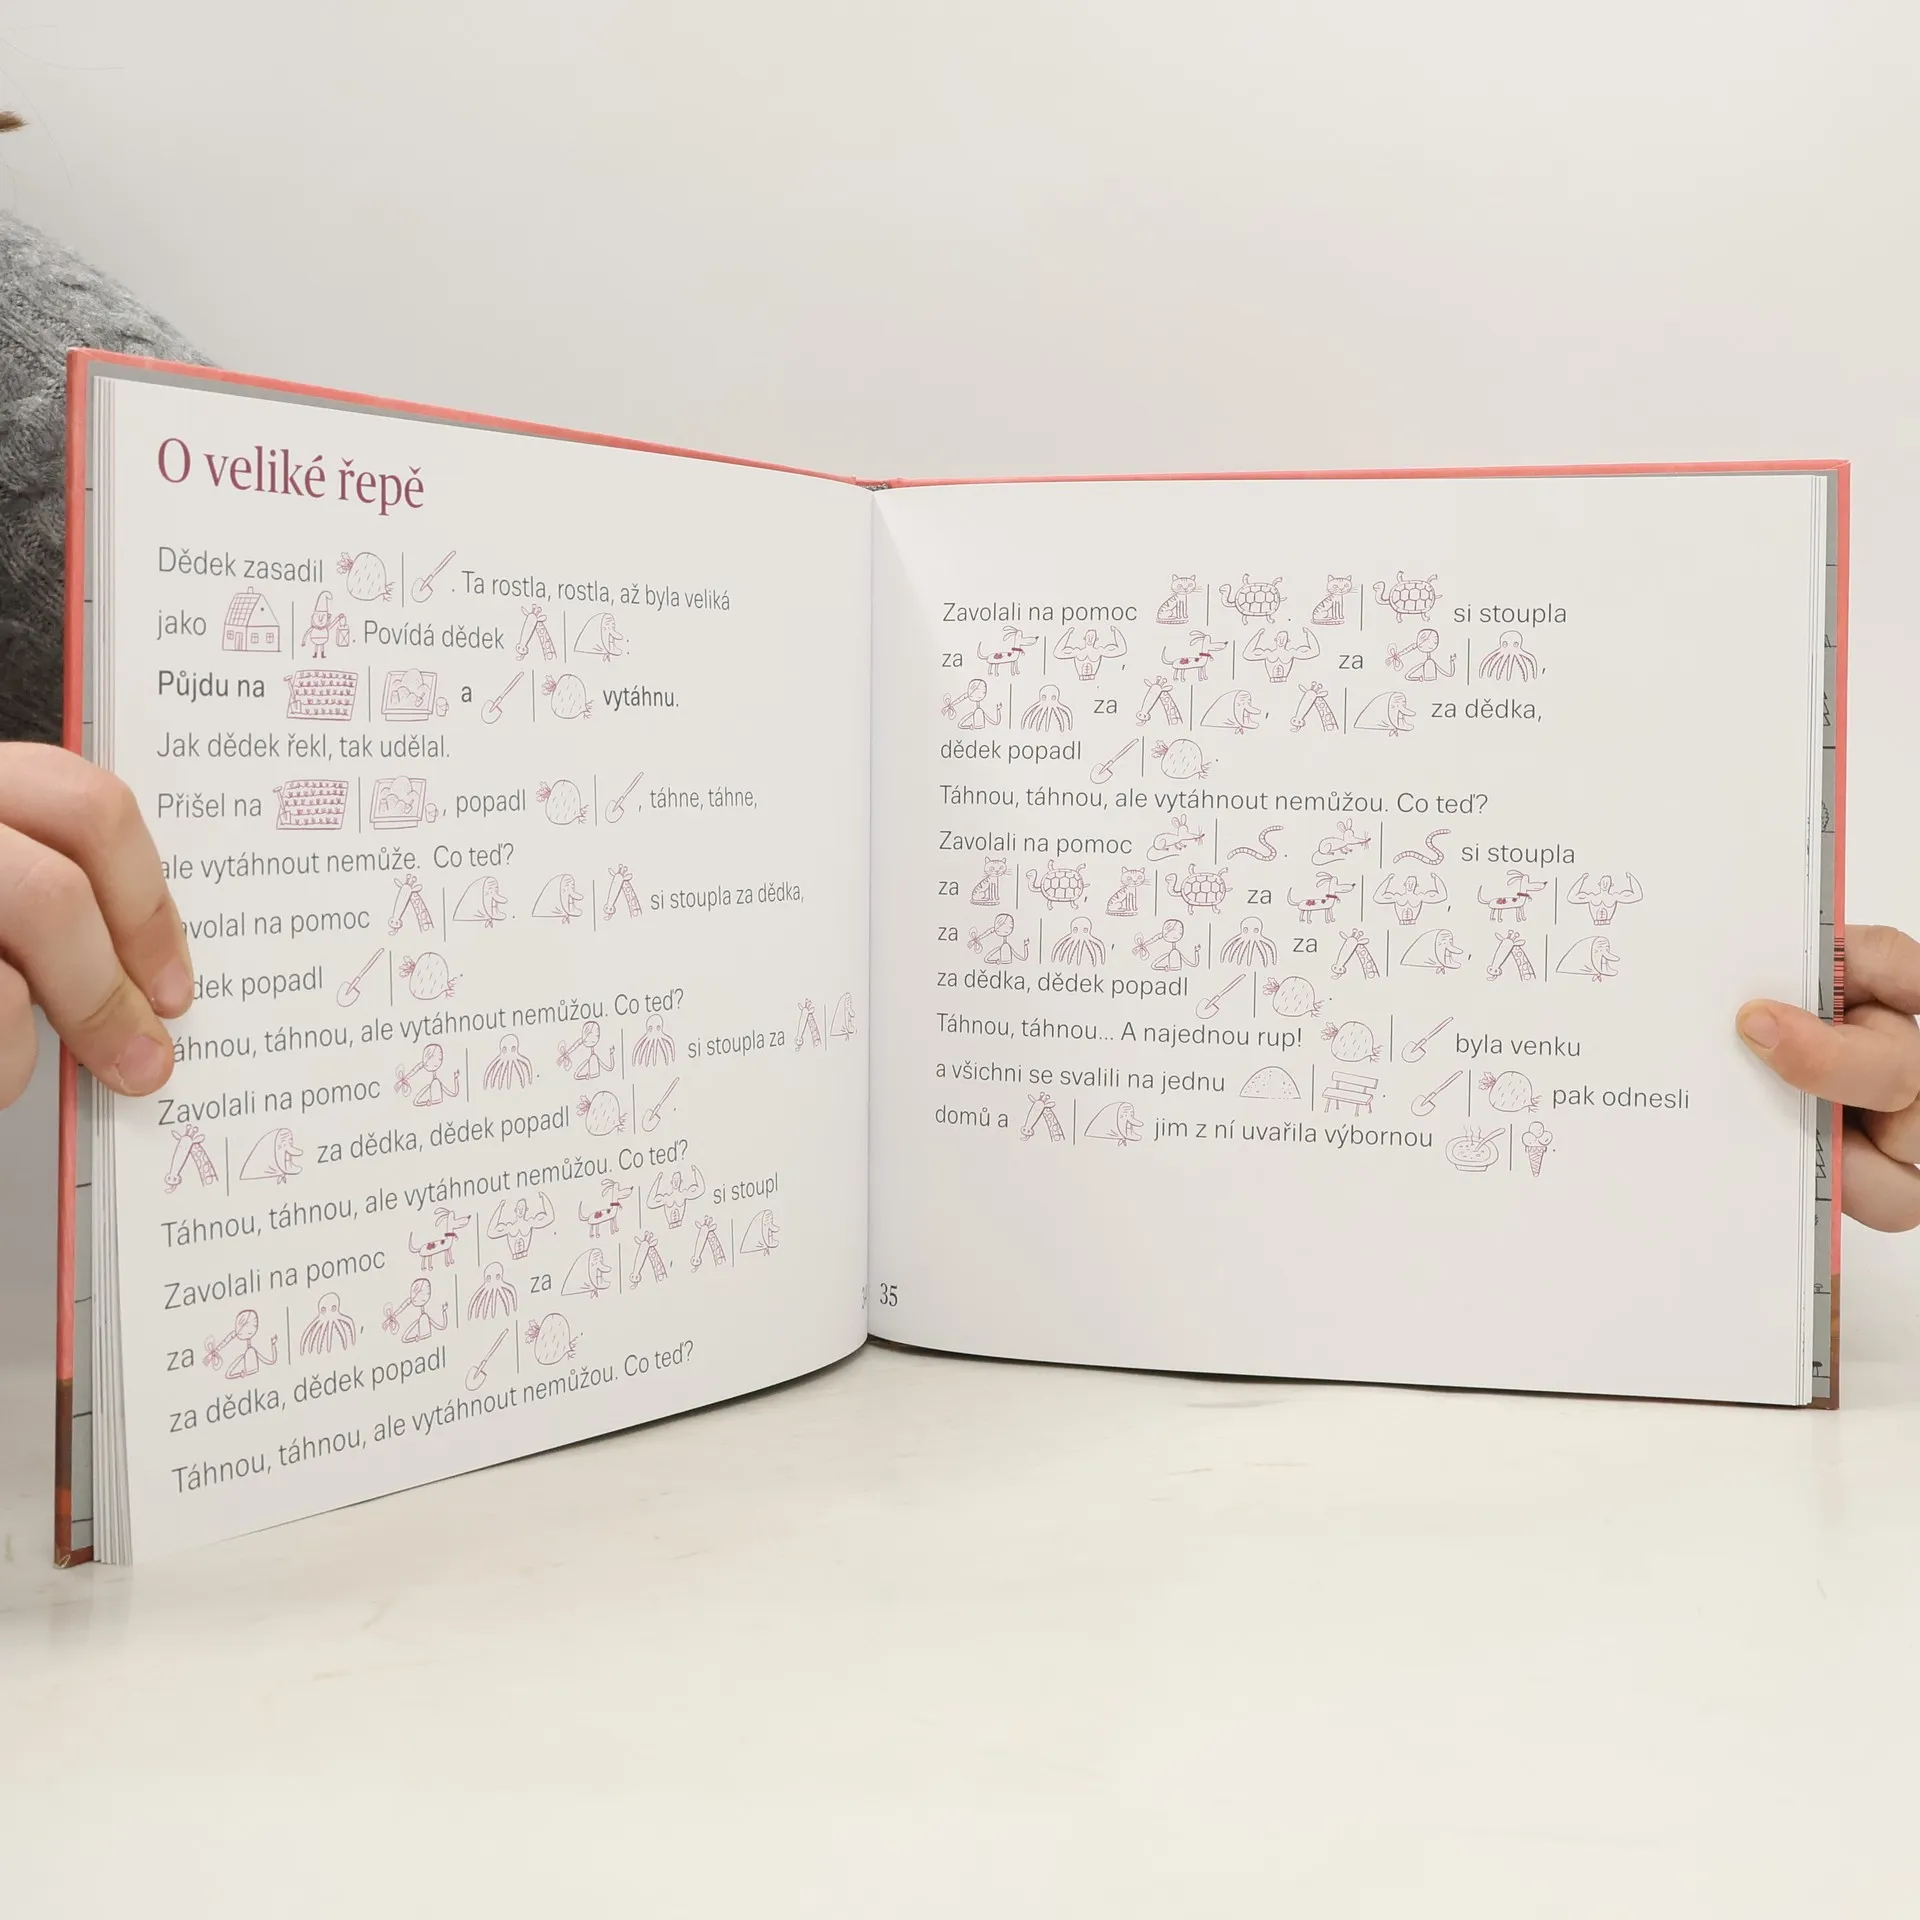 O veliké řepě
Dědek zasadil . Ta rostla, rostla, až byla veliká
jako . Povídá dědek :
Půjdu na a vytáhnu.
Jak dědek řekl, tak udělal.
Přišel na , popadl , táhne, táhne,
ale vytáhnout nemůže. Co teď?
avolal na pomoc . si stoupla za dědka,
dek popadl .
áhnou, táhnou, ale vytáhnout nemůžou. Co teď?
Zavolali na pomoc . si stoupla za
za dědka, dědek popadl .
Táhnou, táhnou, ale vytáhnout nemůžou. Co teď?
Zavolali na pomoc . si stoupl
za , za ,
za dědka, dědek popadl .
Táhnou, táhnou, ale vytáhnout nemůžou. Co teď?
Zavolali na pomoc . si stoupla
za , za ,
za , za dědka,
dědek popadl .
Táhnou, táhnou, ale vytáhnout nemůžou. Co teď?
Zavolali na pomoc . si stoupla
za , za ,
za , za ,
za dědka, dědek popadl .
Táhnou, táhnou... A najednou rup! byla venku
a všichni se svalili na jednu . pak odnesli
domů a jim z ní uvařila výbornou .
35